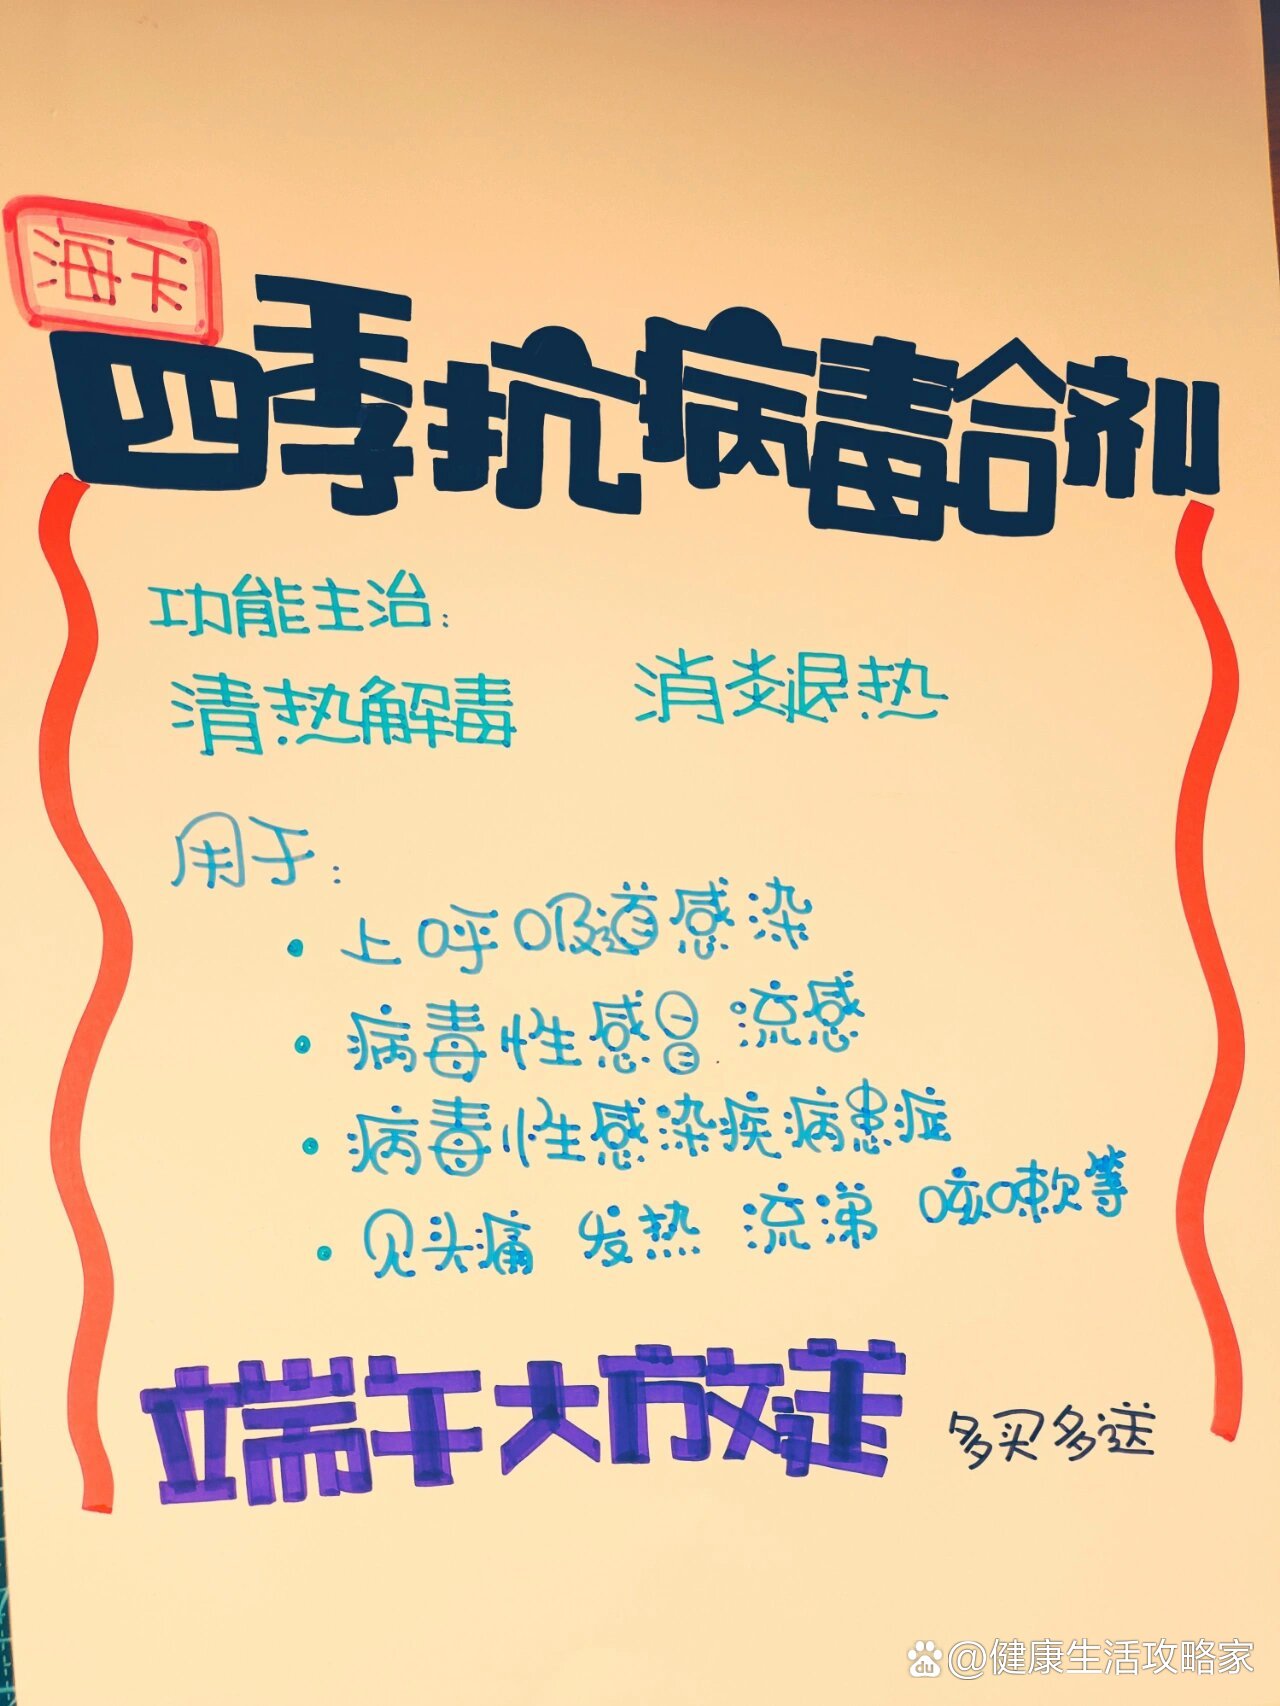 海天
四季抗病毒合剂
功能主治：
清热解毒 消炎退热
用于：
• 上呼吸道感染
• 病毒性感冒 流感
• 病毒性感染疾病患症
• 见头痛 发热 流涕 咳嗽等
端午大放送 多买多送
du @健康生活攻略家